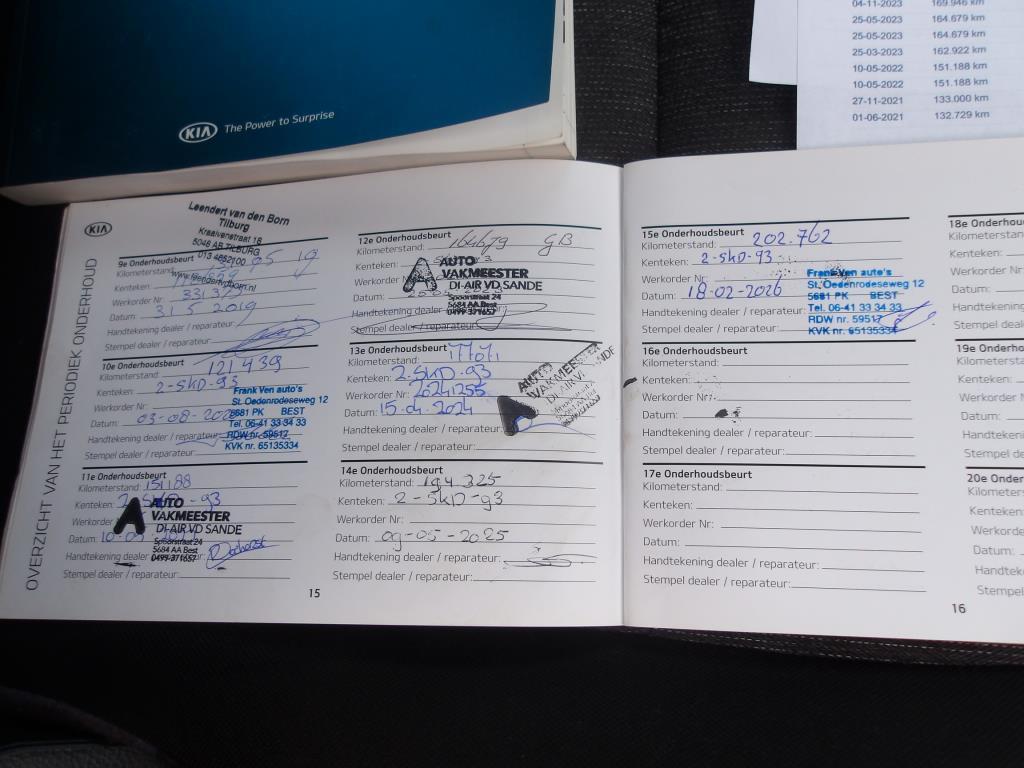 04-11-2023 169.946 km
25-05-2023 164.679 km
25-05-2023 164.679 km
25-03-2023 162.922 km
10-05-2022 151.188 km
10-05-2022 151.188 km
27-11-2021 133.000 km
01-06-2021 132.729 km
KIA The Power to Surprise
KIA
OVERZICHT VAN HET PERIODIEK ONDERHOUD
Leendert van den Born
Tilburg
Kraaivenstraat 18
5048 AB TILBURG
013 4652100
www.leendertvdborn.nl
9e Onderhoudsbeurt
Kilometerstand:
Kenteken:
Werkorder Nr: 331373
Datum: 31 5 2019
Handtekening dealer / reparateur:
Stempel dealer / reparateur:
10e Onderhoudsbeurt
Kilometerstand: 121439
Kenteken: 2-SKD-93
Werkorder Nr:
Datum: 03-08-2020
Handtekening dealer / reparateur:
Stempel dealer / reparateur:
Frank Ven auto's
St. Oedenrodeseweg 12
5681 PK BEST
Tel. 06-41 33 34 33
RDW nr. 59517
KVK nr. 65135334
11e Onderhoudsbeurt
Kilometerstand: 151188
Kenteken: 2-SKD-93
Werkorder
Datum:
Handtekening dealer
Stempel dealer / reparateur:
AUTO
VAKMEESTER
DI-AIR VD SANDE
Spoorstraat 24
5684 AA Best
0499-371657
15
12e Onderhoudsbeurt
Kilometerstand: 164679 GB
Kenteken:
Werkorder
Datum:
Handtekening dealer / reparateur:
Stempel dealer / reparateur:
AUTO
VAKMEESTER
DI-AIR VD SANDE
Spoorstraat 24
5684 AA Best
0499-371657
13e Onderhoudsbeurt
Kilometerstand: 177071
Kenteken: 2-SKD-93
Werkorder Nr: 20241255
Datum: 15-04-2024
Handtekening dealer / reparateur:
Stempel dealer / reparateur:
AUTO
VAKMEESTER
14e Onderhoudsbeurt
Kilometerstand: 194325
Kenteken: 2-SKD-93
Werkorder Nr:
Datum: 09-05-2025
Handtekening dealer / reparateur:
Stempel dealer / reparateur:
15e Onderhoudsbeurt
Kilometerstand: 202.762
Kenteken: 2-SKD-93
Werkorder Nr:
Datum: 18-02-2026
Handtekening dealer / reparateur:
Stempel dealer / reparateur:
Frank Ven auto's
St. Oedenrodeseweg 12
5681 PK BEST
Tel. 06-41 33 34 33
RDW nr. 59517
KVK nr. 65135334
16e Onderhoudsbeurt
Kilometerstand:
Kenteken:
Werkorder Nr:
Datum:
Handtekening dealer / reparateur:
Stempel dealer / reparateur:
17e Onderhoudsbeurt
Kilometerstand:
Kenteken:
Werkorder Nr:
Datum:
Handtekening dealer / reparateur:
Stempel dealer / reparateur:
18e Onderhoudsbeurt
Kilometerstand
Kenteken:
Werkorder
Datum:
Handtekening
Stempel dealer
19e Onderhou
Kilometersta
Kenteken:
Werkorder
Datum:
Handtekening
Stempel deale
20e Onder
Kilometers
Kenteken:
Werkorde
Datum:
Handteken
Stempel de
16